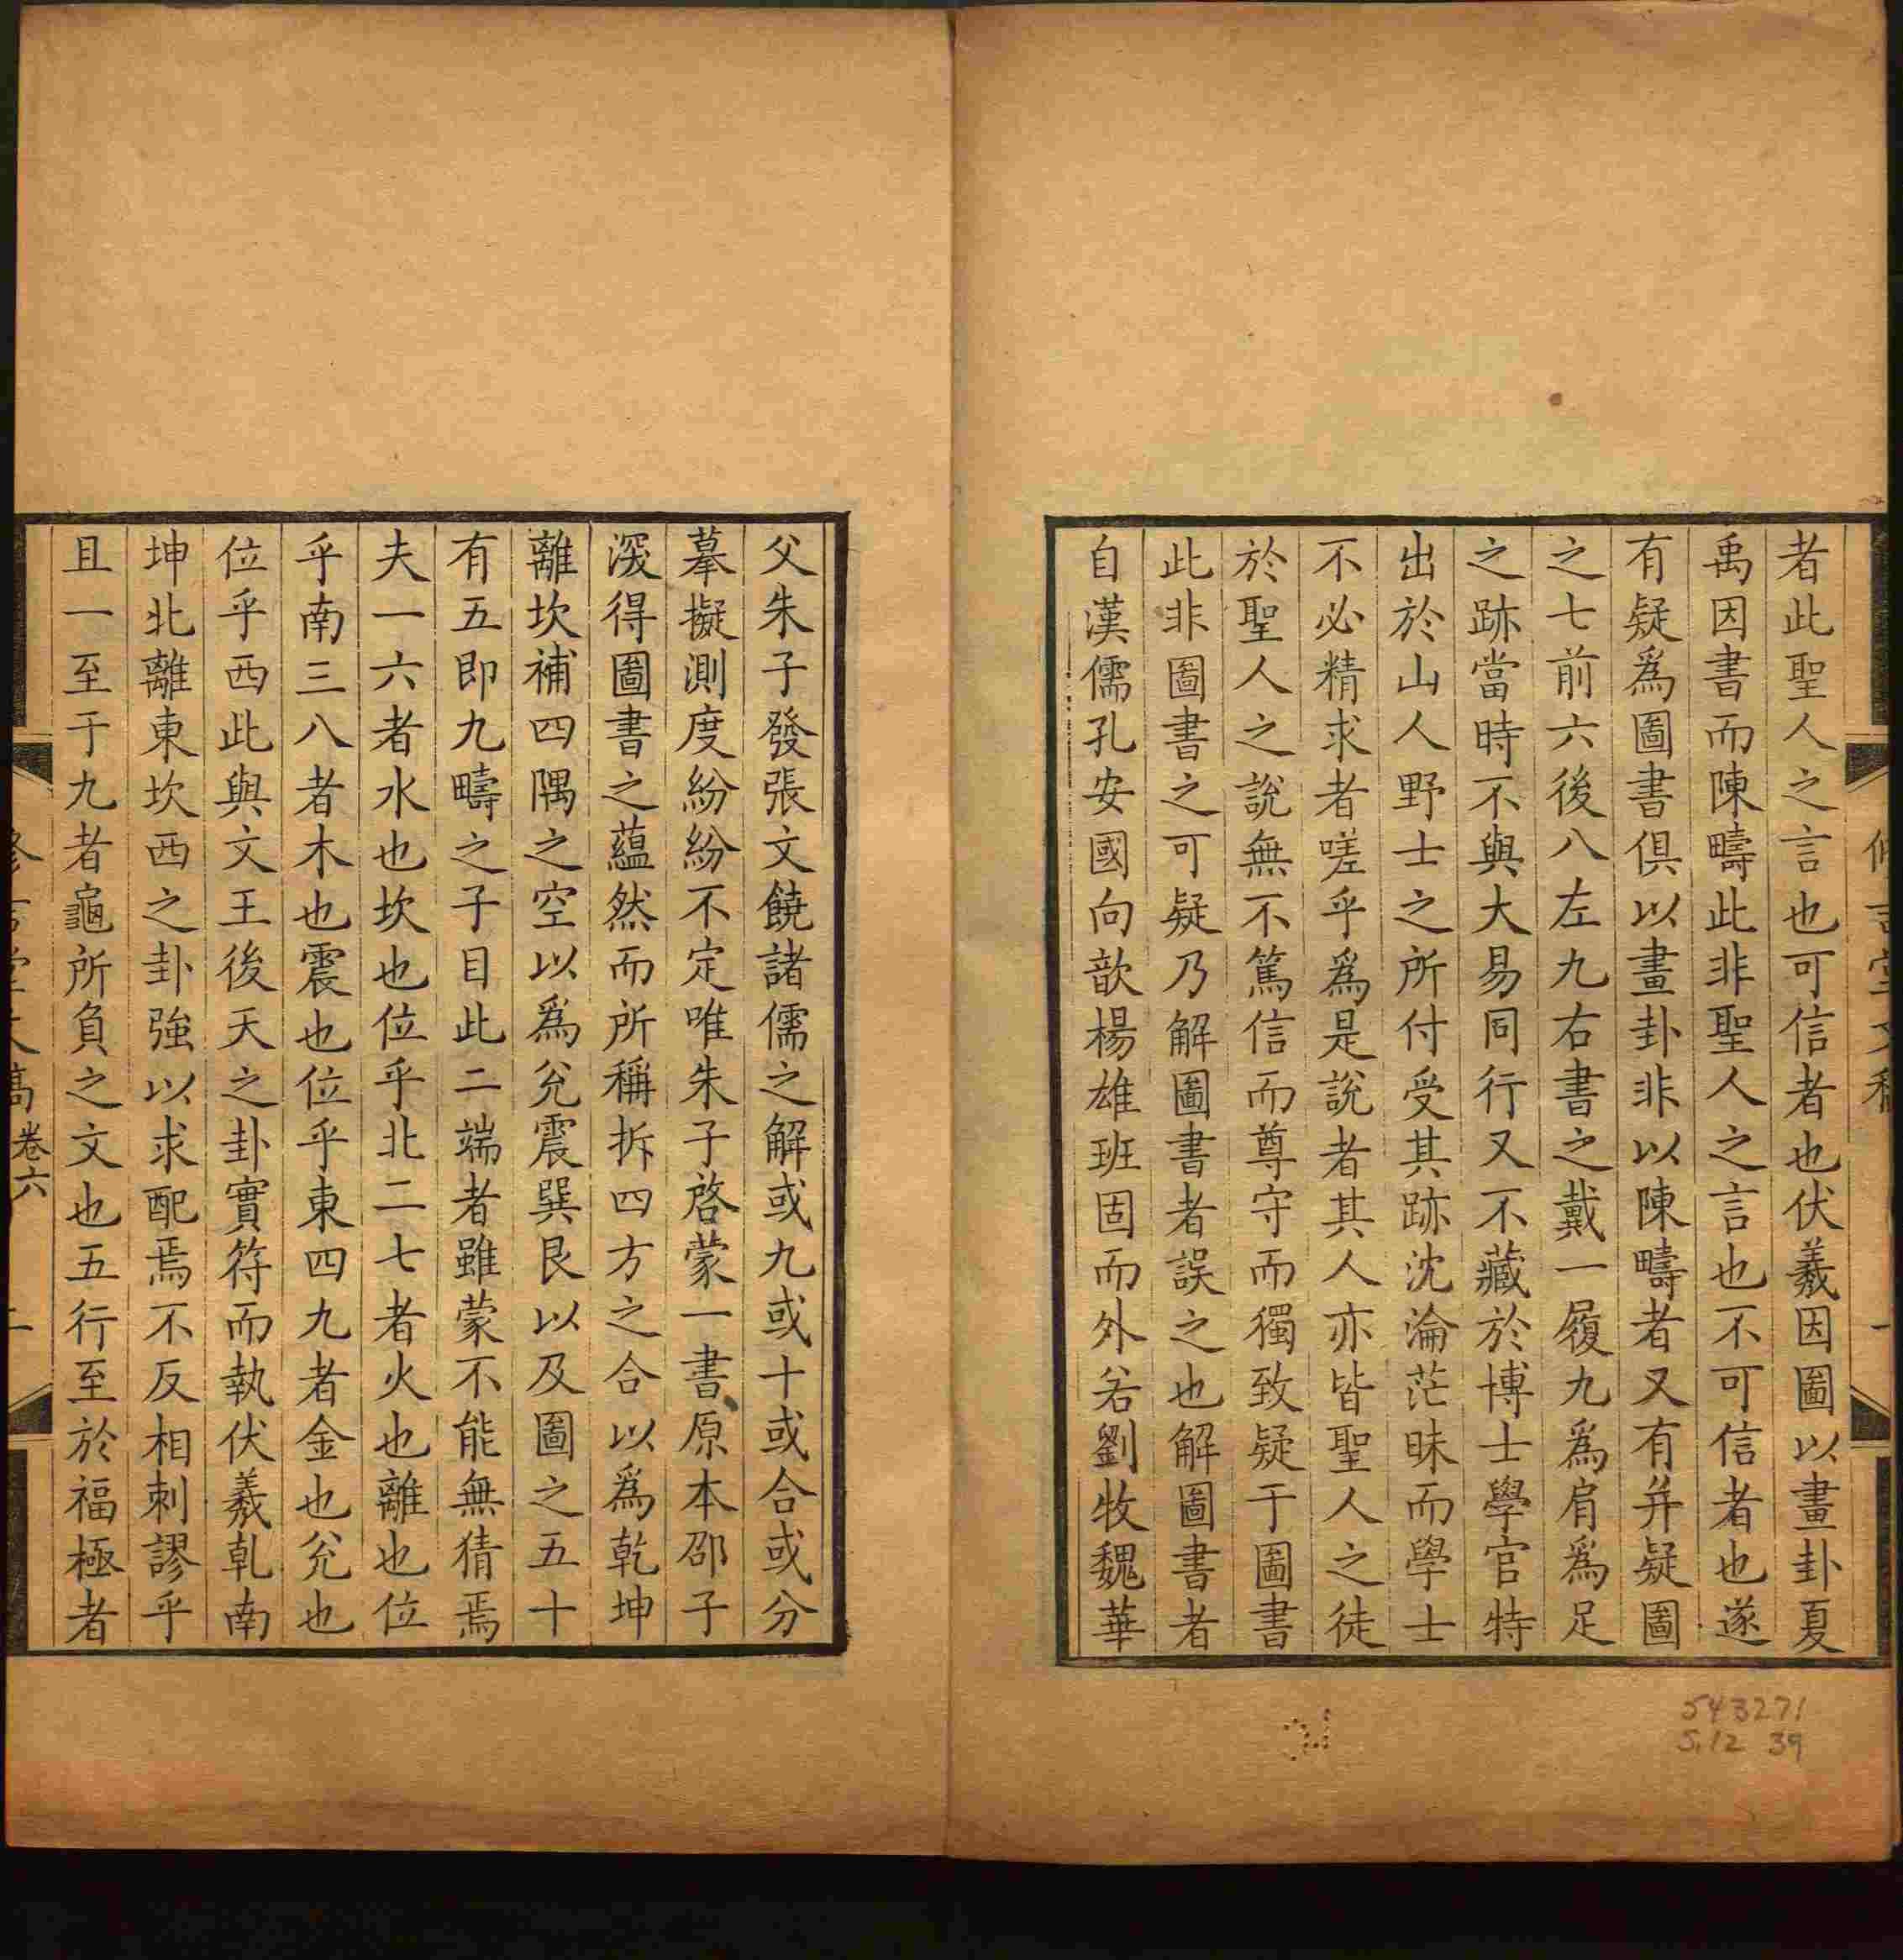 者此聖人之言也可信者也伏羲因圖以畫卦夏
禹因書而陳疇此非聖人之言也不可信者也遂
有疑爲圖書俱以畫卦非以陳疇者又有并疑圖
之七前六後八左九右書之戴一履九爲肩爲足
之跡當時不與大易同行又不藏於博士學官特
出於山人野士之所付受其跡沈淪茫昧而學士
不必精求者嗟乎爲是說者其人亦皆聖人之徒
於聖人之說無不篤信而尊守而獨致疑于圖書
此非圖書之可疑乃解圖書者誤之也解圖書者
自漢儒孔安國向歆楊雄班固而外若劉牧魏華
父朱子發張文饒諸儒之解或九或十或合或分
摹擬測度紛紛不定唯朱子啓蒙一書原本邵子
深得圖書之蘊然而所稱拆四方之合以爲乾坤
離坎補四隅之空以爲兌震巽艮以及圖之五十
有五即九疇之子目此二端者雖蒙不能無猜焉
夫一六者水也坎也位乎北二七者火也離也位
乎南三八者木也震也位乎東四九者金也兌也
位乎西此與文王後天之卦實符而執伏羲乹南
坤北離東坎西之卦強以求配焉不反相刺謬乎
且一至于九者龜所負之文也五行至於福極者
卷六
543271
5.12 39